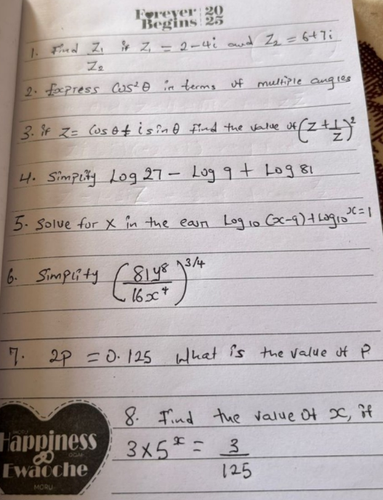 Forever Begins 20 25
1. Find Z₁/Z₂ if Z₁ = 2-4i and Z₂ = 6+7i
2. Express Cos²θ in terms of multiple angles
3. if Z = Cos θ + i sin θ find the value of (Z + 1/Z)²
4. Simplify Log 27 - Log 9 + Log 81
5. Solve for X in the eqn Log₁₀ (x-9) + Log₁₀ x = 1
6. Simplify (81y⁸/16x⁴)^3/4
7. 2P = 0.125 What is the value of P
8. Find the value of x, if
3 × 5^x = 3/125
Happiness
Ewacche